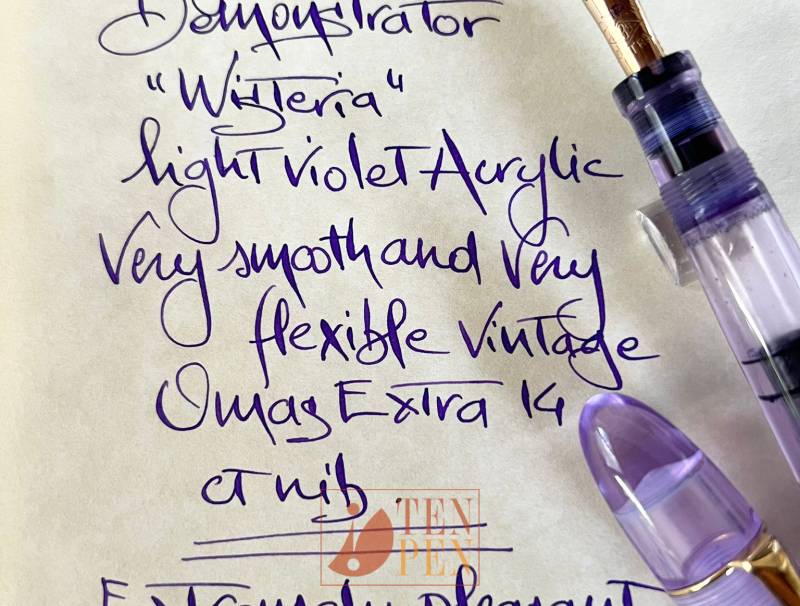 Demonstrator
"Wisteria"
light violet Acrylic
Very smooth and very
flexible vintage
Omas Extra 14
ct nib.
TEN
PEN
Extremely pleasant